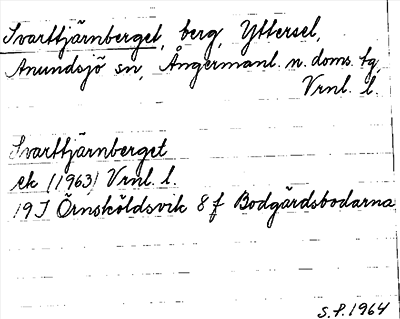 Svarttjärnberget, berg, Yttersel,
Anundsjö sn, Ångermanl. n. doms. tg,
Vrnl. l.
Svarttjärnberget
ek (1963) Vrnl. l.
19J Örnsköldsvik 8 f Bodgårdsbodarna
S.P. 1964